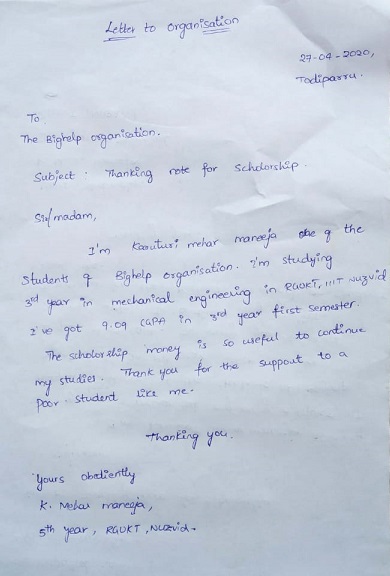 Letter to organisation
27-04-2020,
Todiparru.
To
The Bighelp organisation.
Subject: Thanking note for Scholorship.
Sir/madam,
I'm Karuturi mehar maneeja one of the
Students of Bighelp organisation. I'm studying
3rd year in mechanical engineering in RGUKT, IIIT Nuzvid
I've got 9.09 CGPA in 3rd year first semester.
The scholorship money is so useful to continue
my studies. Thank you for the support to a
poor student like me.
Thanking you.
Yours obediently
K. Mehar maneeja,
5th year, RGUKT, Nuzvid.